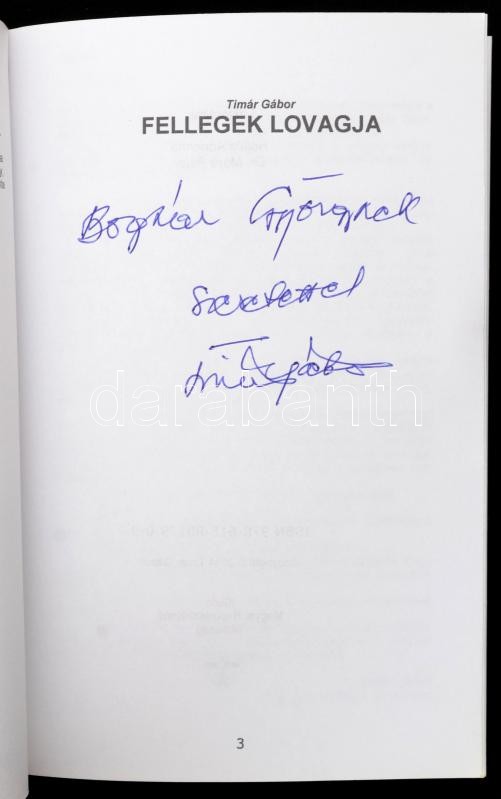 Timár Gábor
FELLEGEK LOVAGJA
Györgynek
szeretettel
Timár Gábor
darabanth
3